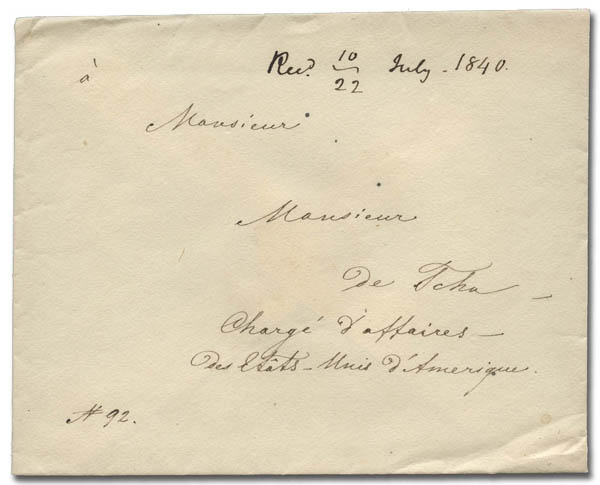 Recd. 10/22 July - 1840.
à
Monsieur
Monsieur
de Tcha -
Chargé d'affaires -
des Etâts-Unis d'Amerique.
N 92.